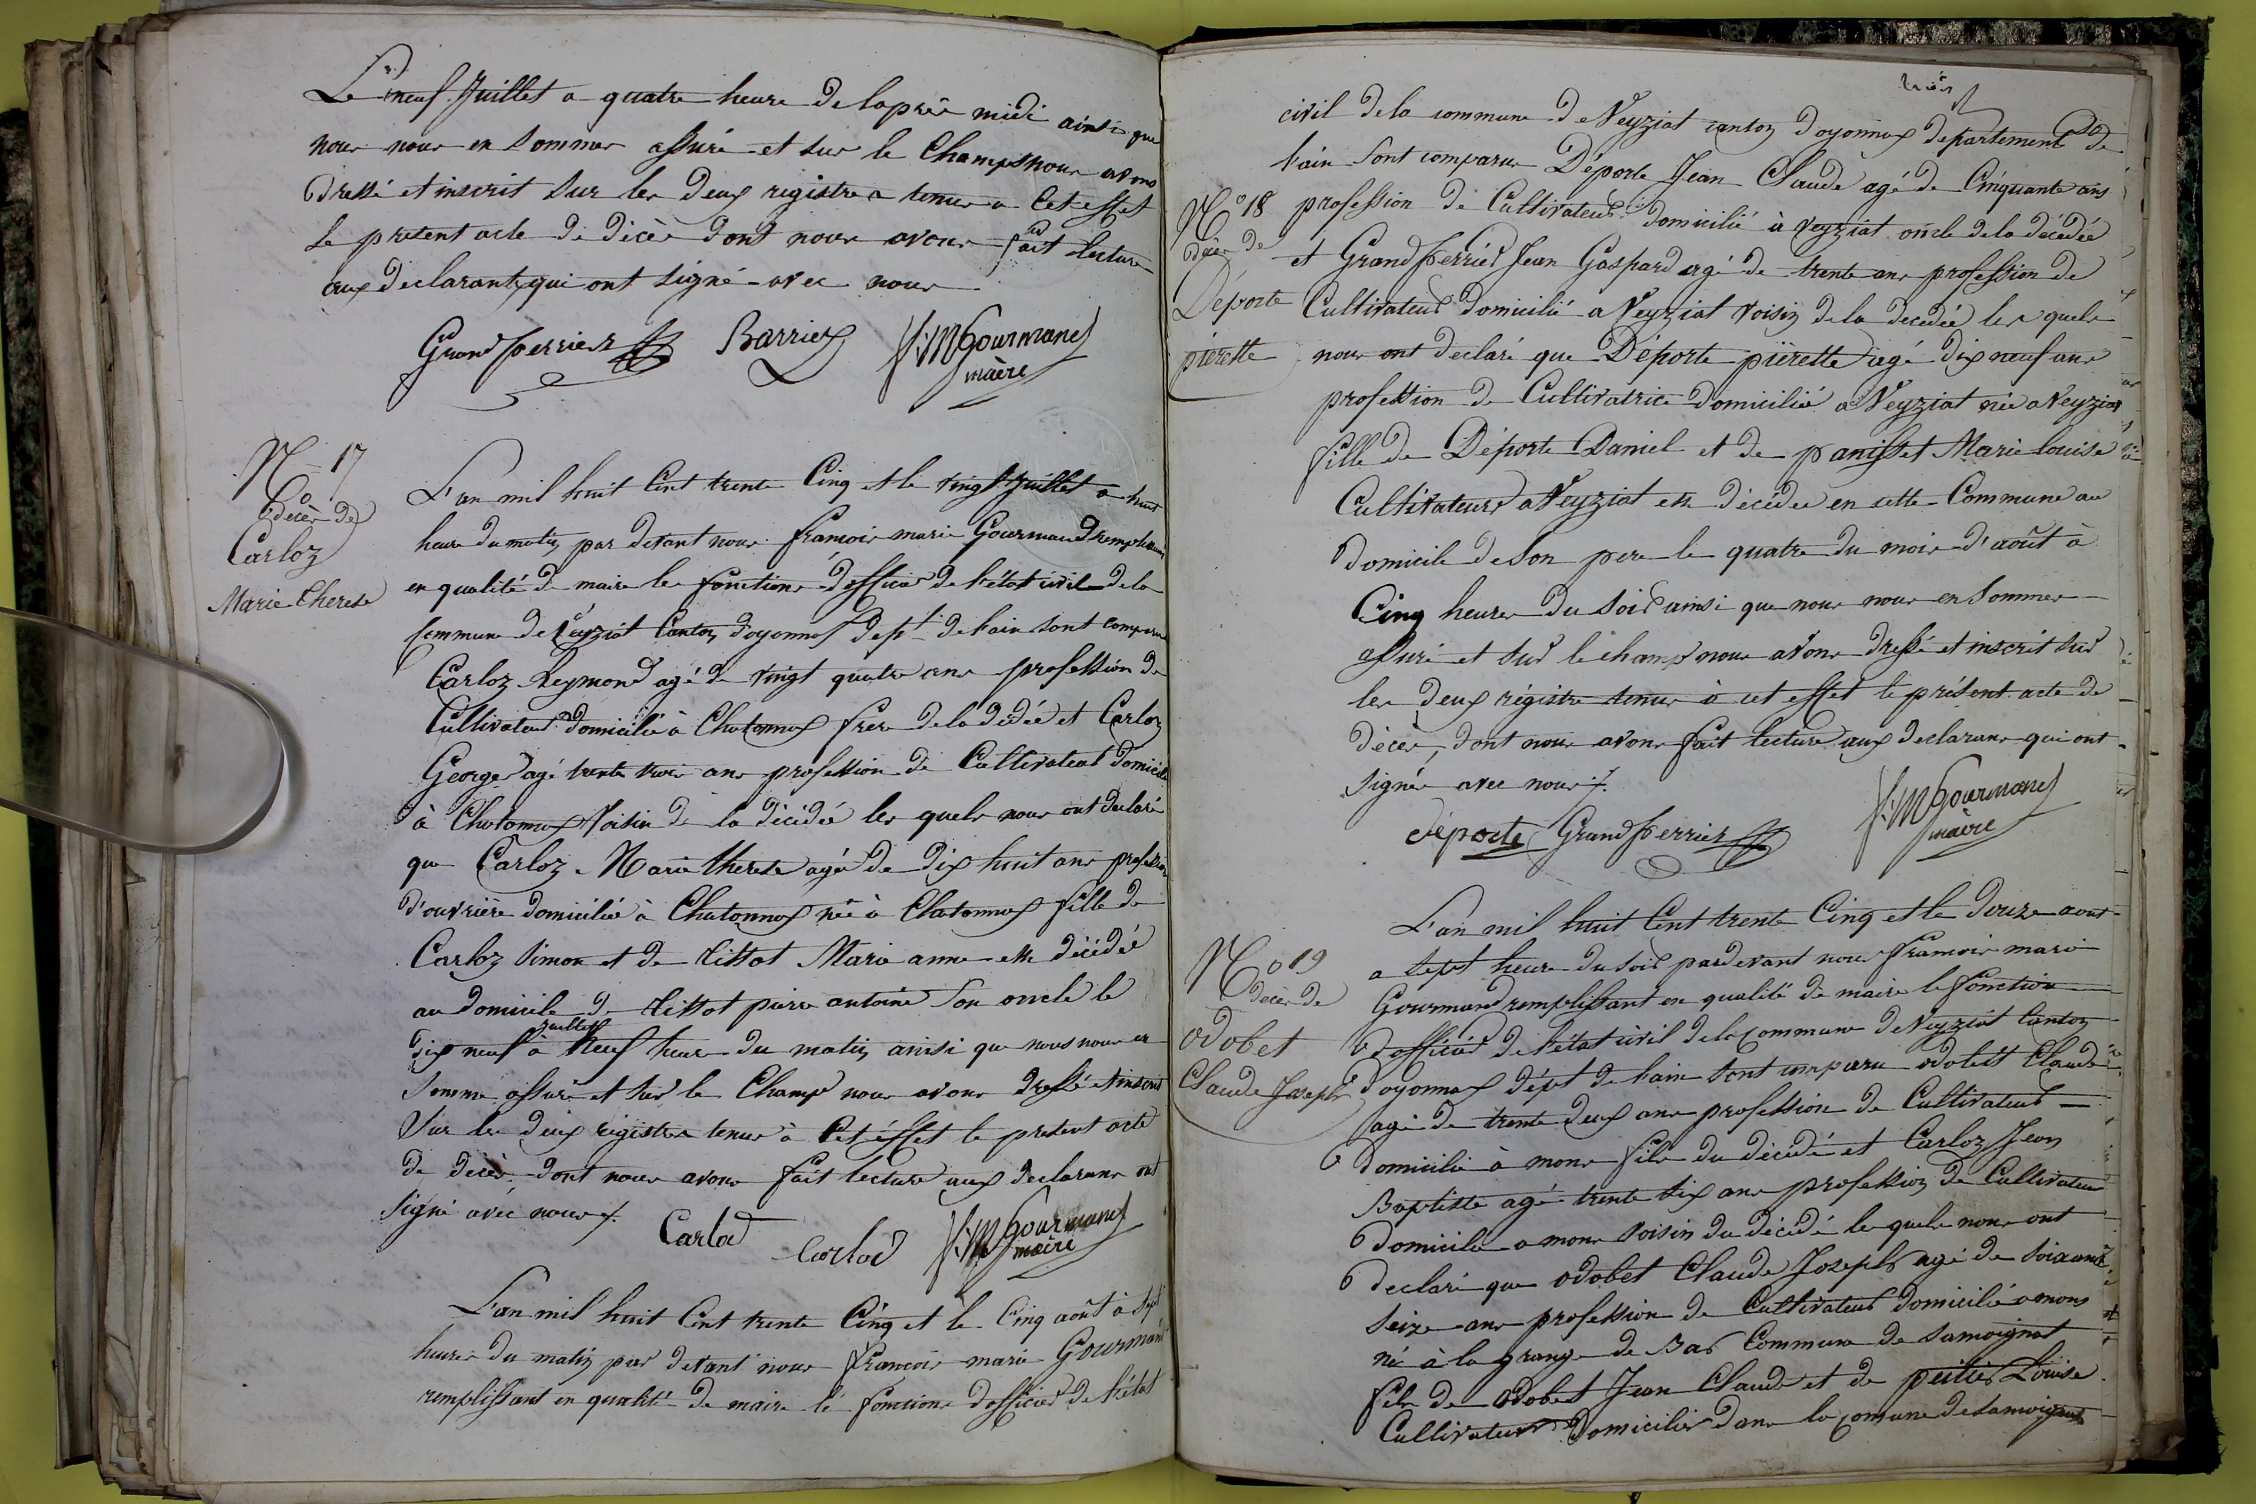 Le neuf Juillet a quatre heure de laprès midi ainsi que
nous nous en sommes assuré et sur le Champs nous avons
dressé et inscrit sur les deux registres tenus a Cet effet
Le present acte de décès dont nous avons fait lecture
aux declarants qui ont signé avec nous
Grandperrier Barrier f: M Gourmand
maère
N° 17
decès de
Carloz
Marie Therese
L'an mil huit Cent trente Cinq et le vingt juillet a huit
heure du matin par devant nous françois marie Gourmand remplissant
en qualité de maire les fonctions d'officier de l'état civil de la
Commune de Veyziat Canton d'oyonnax dept de l'ain sont comparu
Carloz Reymond agé de vingt quatre ans profession de
Cultivateur domicilié à Chatonnax frere de la dédée et Carloz
George agé trente trois ans profession de Cultivateur domicilié
à Chatonnax Voisin de la décédée les quels nous ont declaré
que Carloz Marie therese agée de dix huit ans profession
d'ouvrière domiciliée à Chatonnax née à Chatonnax fille de
Carloz Simon et de tissot Marie anne est décédée
au domicile de tissot pierre antoine Son oncle le
dix neuf juillet à Neuf heure du matin ainsi que nous nous en
somme assuré et sur le Champ nous avons dressé et inscrit
Sur les deux registres tenus à Cet éffet le present acte
de décès dont nous avons fait lecture aux declarans ont
signé avec nous
Carlod Carlod f: M Gourmand
maère
L'an mil huit Cent trente Cinq et le Cinq août à sept
heures du matin par devant nous françois marie Gourmand
remplissant en qualité de maire lé fonctions d'officier de l'état
civil de la commune de Veyziat canton d'oyonnax departement de
l'ain sont comparus Déporte Jean Claude agé de Cinquante ans
N° 18
décès de
Déporte
piérette
profession de Cultivateur domicilié à Veyziat oncle de la décédée
et Grandperrier Jean Gaspard agé de trente ans profession de
Cultivateur domicilié a Veyziat voisin de la decedée les quels
nous ont declaré que Déporte piérette agé dix neuf ans
profession de Cultivatrice domiciliée a Veyziat née a Veyziat
fille de Déporte Daniel et de panisset Marie Louise
Cultivateurs a Veyziat est décédée en cette Commune au
domicile de Son pere le quatre du mois d'août à
Cinq heures du Soir ainsi que nous nous en sommes
assuré et sur le champ nous avons dressé et inscrit sur
les deux régistre tenus à cet effet le présent acte de
décès, dont nous avons fait lecture aux declarans qui ont
signé avec nous
déporte Grandperrier f: M Gourmand
maère
N° 19
decès de
odobet
Claude Joseph
L'an mil huit Cent trente Cinq et le douze aout
a sept heure du soir pardevant nous françois marie
Gourmand remplissant en qualité de maire le fonction
d'officier de l'état civil de la Commune de Veyziat Canton
d'oyonnax dépt de l'ain sont comparu odobett Claude
agé de trente deux ans profession de Cultivateur
domicilié à mons fils du décédé et Carloz Jean
Baptiste agé trente six ans profession de Cultivateur
domicilié a mons voisin du décédé les quels nous ont
declaré que odobet Claude Joseph agé de soixante
seize ans profession de Cultivateur domicilié a mons
né à la grange de Bas Commune de samoignat
fils de odobet Jean Claude et de Louise
Cultivateurs domiciliés dans la comune de samoignat